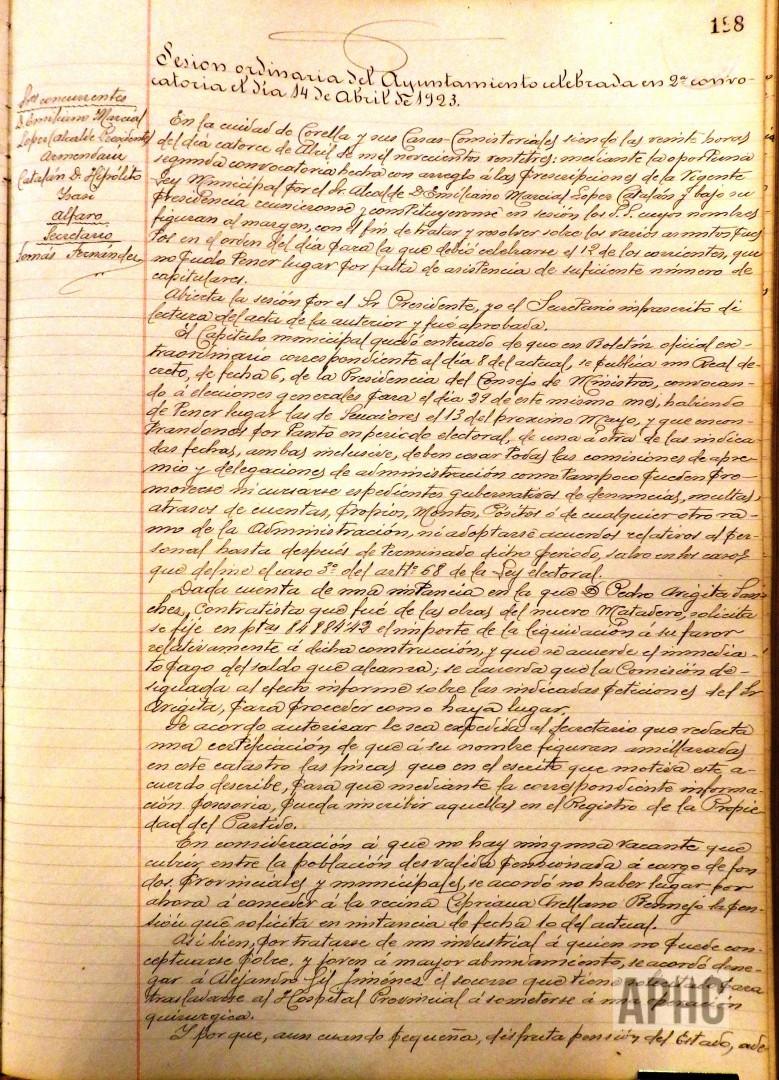 158
Sesion ordinaria del Ayuntamiento celebrada en 2ª convo-
catoria el día 14 de Abril de 1923.
Sres concurrentes
D. Emiliano Marcial
Lopez (alcalde Presidente)
Armendariz
Catalán D. Hipólito
Ysasi
Alfaro
Secretario
Tomás Fernández
En la ciudad de Corella y sus Casas-Consistoriales siendo las veinte horas
del día catorce de Abril de mil novecientos ventitres: mediante la oportuna
segunda convocatoria hecha con arreglo á las prescripciones de la vigente
Ley Municipal por el Sr. Alcalde D. Emiliano Marcial Lopez Catalán y bajo su
presidencia reunieronse y constituyeronse en sesión los S.S. cuyos nombres
figuran al margen, con el fin de tratar y resolver sobre los varios asuntos pues
tos en el orden del día para la que debió celebrarse el 12 de los corrientes, que
no pudo tener lugar por falta de asistencia de suficiente número de
capitulares.
Abierta la sesión por el Sr. Presidente, yo el Secretario infrascrito di
lectura del acta de la anterior y fué aprobada.
El Capitulo municipal quedó enterado de que en Boletín oficial ex-
traordinario correspondiente al día 8 del actual, se publica un Real de-
creto, de fecha 6, de la Presidencia del Consejo de Ministros, convocan-
do á elecciones generales para el día 29 de este mismo mes, habiendo
de tener lugar las de Senadores el 13 del proximo Mayo, y que encon-
trandonos por tanto en periodo electoral, de una á otra de las indica-
das fechas, ambas inclusive, deben cesar todas las comisiones de apre-
mio y delegaciones de administración como tampoco pueden pro-
moverse ni cursarse espedientes gubernativos de denuncias, multas,
atrasos de cuentas, propios, Montes, Pósitos ó de cualquier otro ra-
mo de la Administración, ni adoptarse acuerdos relativos al per-
sonal hasta después de terminado dicho periodo, salvo en los casos
que define el caso 3º del artº 68 de la Ley electoral.
Dada cuenta de una instancia en la que D. Pedro Arigita San-
chez, Contratista que fué de las obras del nuevo Matadero, solicita
se fije en ptas 84984'42 el importe de la liquidación á su favor
relativamente á dicha construcción, y que se acuerde el inmedia-
to pago del saldo que alcanza; se acuerda que la Comisión de-
signada al efecto informe sobre las indicadas peticiones del Sr
Arigita, para proceder como haya lugar.
Se acordó autorizar le sea expedida al Secretario que redacta
una certificación de que á su nombre figuran amillaradas
en este catastro las fincas que en el escrito que motiva este a-
cuerdo describe, para que mediante la correspondiente informa-
ción posesoria, pueda inscribir aquellas en el Registro de la Propie-
dad del Partido.
En consideración á que no hay ninguna vacante que
cubrir, entre la población desvalida pensionada á cargo de fon
dos provinciales y municipales, se acordó no haber lugar por
ahora á conceder á la vecina Cipriana Arellano Bermejo la pen-
sión que solicita en instancia de fecha 10 del actual.
Así bien, por tratarse de un industrial á quien no puede con-
ceptuarse pobre, y joven á mayor abundamiento, se acordó dene-
gar á Alejandro Gil Jiménez el socorro que tiene para
trasladarse al Hospital Provincial á someterse á una operación
quirurgica.
Y porque, aun cuando pequeña, disfruta pensión del Estado, ade-
APHC